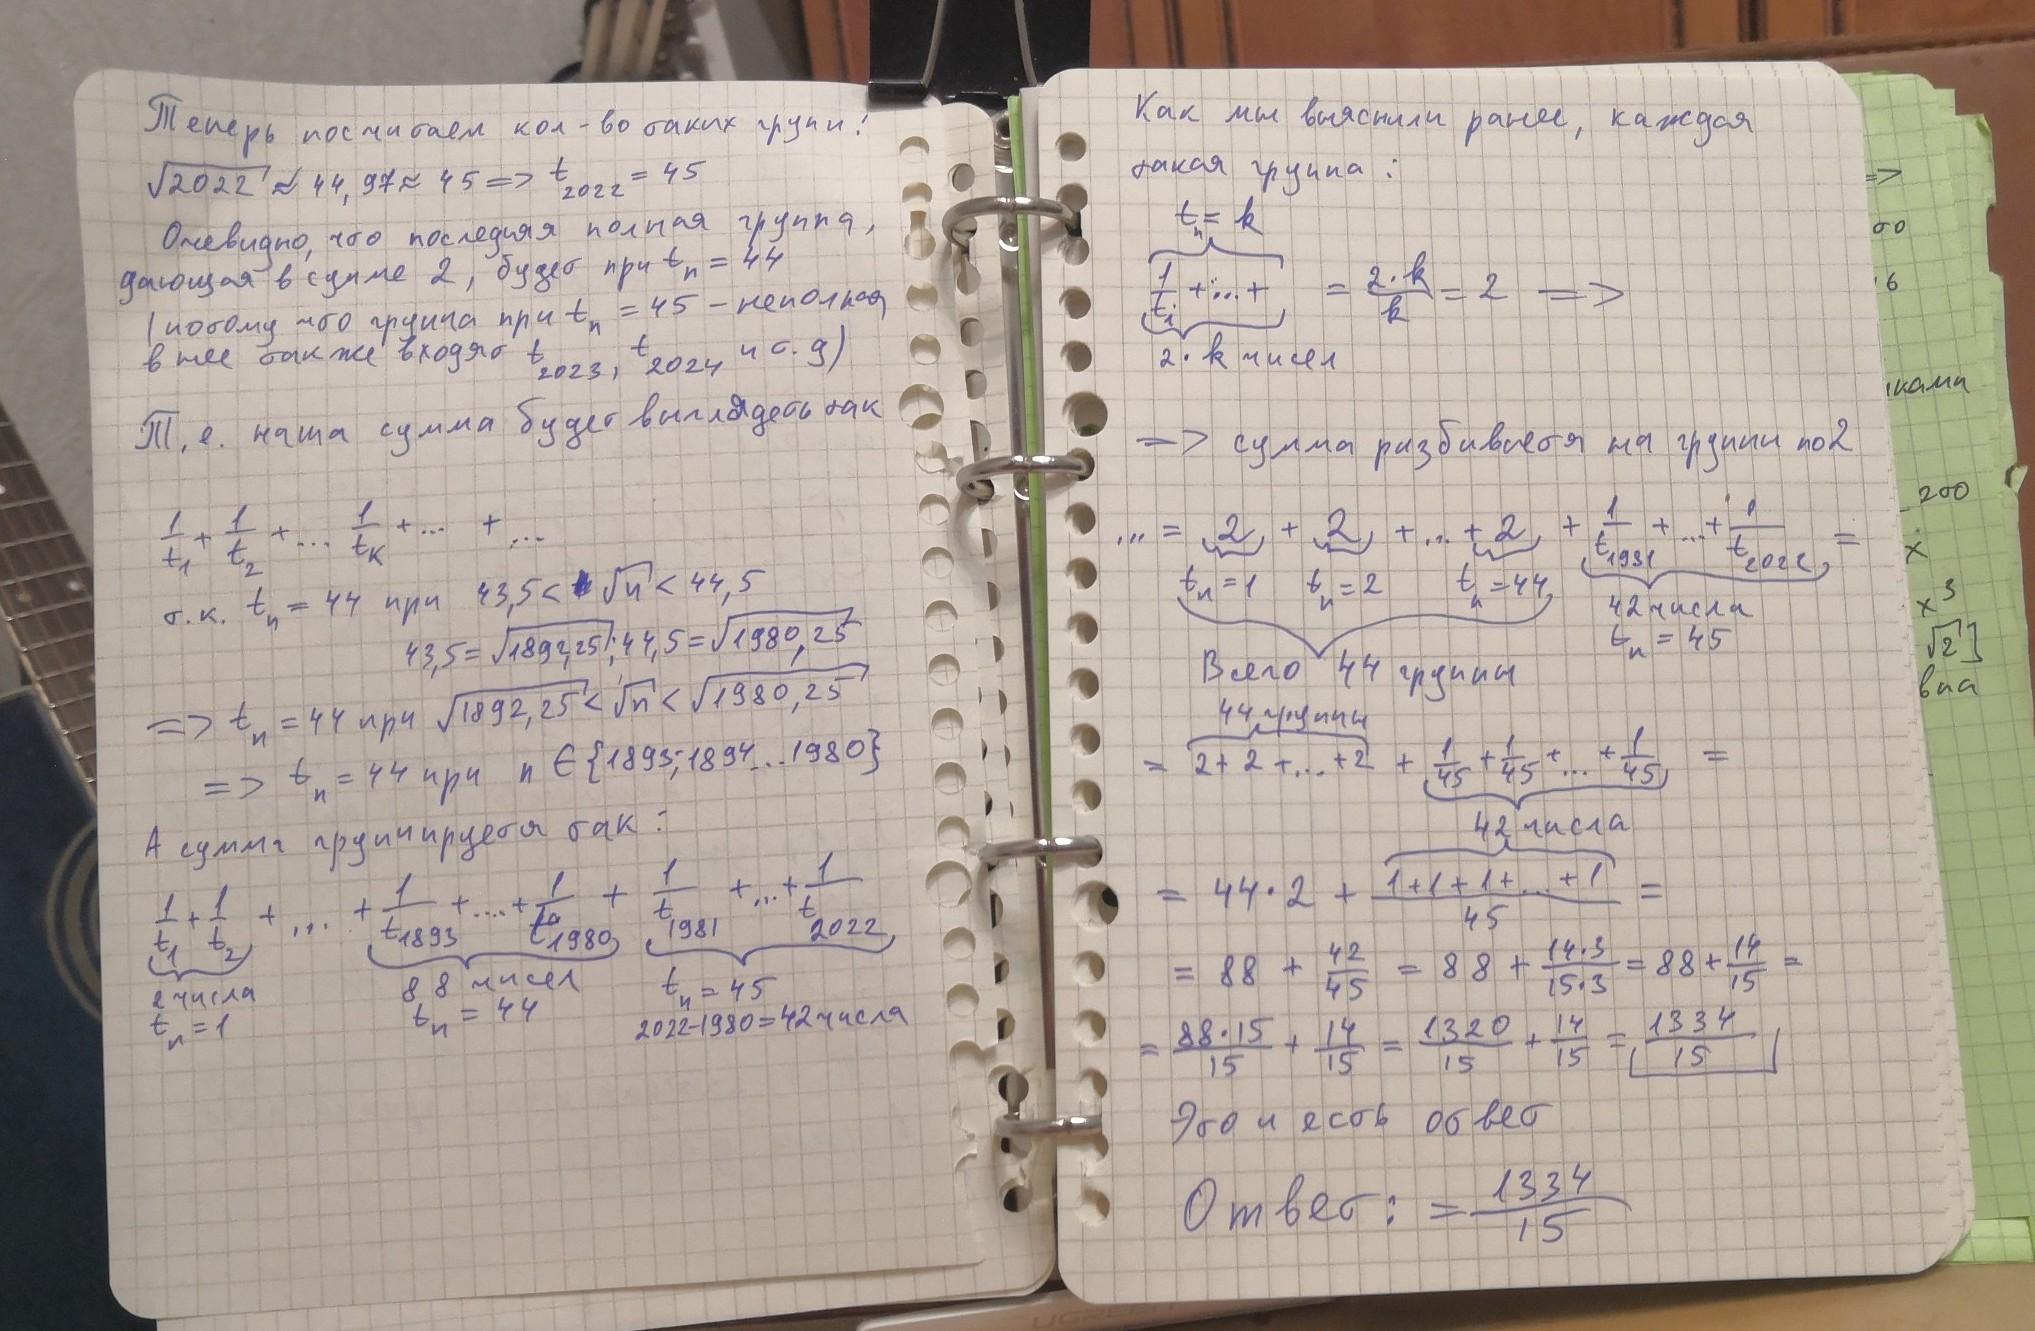 Теперь посчитаем кол-во таких групп:
√2022 ≈ 44,97 ≈ 45 => t₂₀₂₂ = 45
Очевидно, что последняя полная группа,
дающая в сумме 2, будет при tₙ = 44
(потому что группа при tₙ = 45 - неполная,
в нее также входят t₂₀₂₃, t₂₀₂₄ и т.д)
Т.е. наша сумма будет выглядеть так
1/t₁ + 1/t₂ + ... 1/tₖ + ... + ...
т.к. tₙ = 44 при 43,5 < √n < 44,5
43,5 = √1892,25; 44,5 = √1980,25
=> tₙ = 44 при √1892,25 < √n < √1980,25
=> tₙ = 44 при n ∈ {1893; 1894...1980}
А сумма группируется так:
1/t₁ + 1/t₂ + ... + 1/t₁₈₉₃ + ... + 1/t₁₉₈₀ + 1/t₁₉₈₁ + ... + 1/t₂₀₂₂
2 числа 88 чисел tₙ = 45
tₙ = 1 tₙ = 44 2022-1980 = 42 числа
Как мы выяснили ранее, каждая
такая группа:
tₙ = k
1/tᵢ + ... + = 2·k/k = 2 =>
2·k чисел
=> сумма разбивается на группы по 2
... = 2 + 2 + ... + 2 + 1/t₁₉₈₁ + ... + 1/t₂₀₂₂ =
tₙ = 1 tₙ = 2 tₙ = 44 42 числа
tₙ = 45
Всего 44 группы
44 группы
= 2 + 2 + ... + 2 + 1/45 + 1/45 + ... + 1/45 =
42 числа
= 44·2 + (1+1+1+...+1)/45 =
= 88 + 42/45 = 88 + 14·3/15·3 = 88 + 14/15 =
= 88·15/15 + 14/15 = 1320/15 + 14/15 = 1334/15
Это и есть ответ
Ответ: = 1334/15
=>
то
16
иками
что
x
x³
√2]